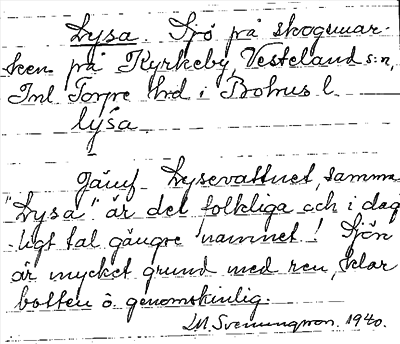 Lysa. Sjö på skogsmar-
ken på Kyrkeby, Västeland s:n,
Inl Torpe hd i Bohus l.
lýsa
Jämf. Lysevattnet, samma
"Lysa" är det folkliga och i dag
-ligt tal gängse namnet! Sjön
är mycket grund med ren, klar
botten o. genomskinlig.
LM. Svenungsson. 1940.